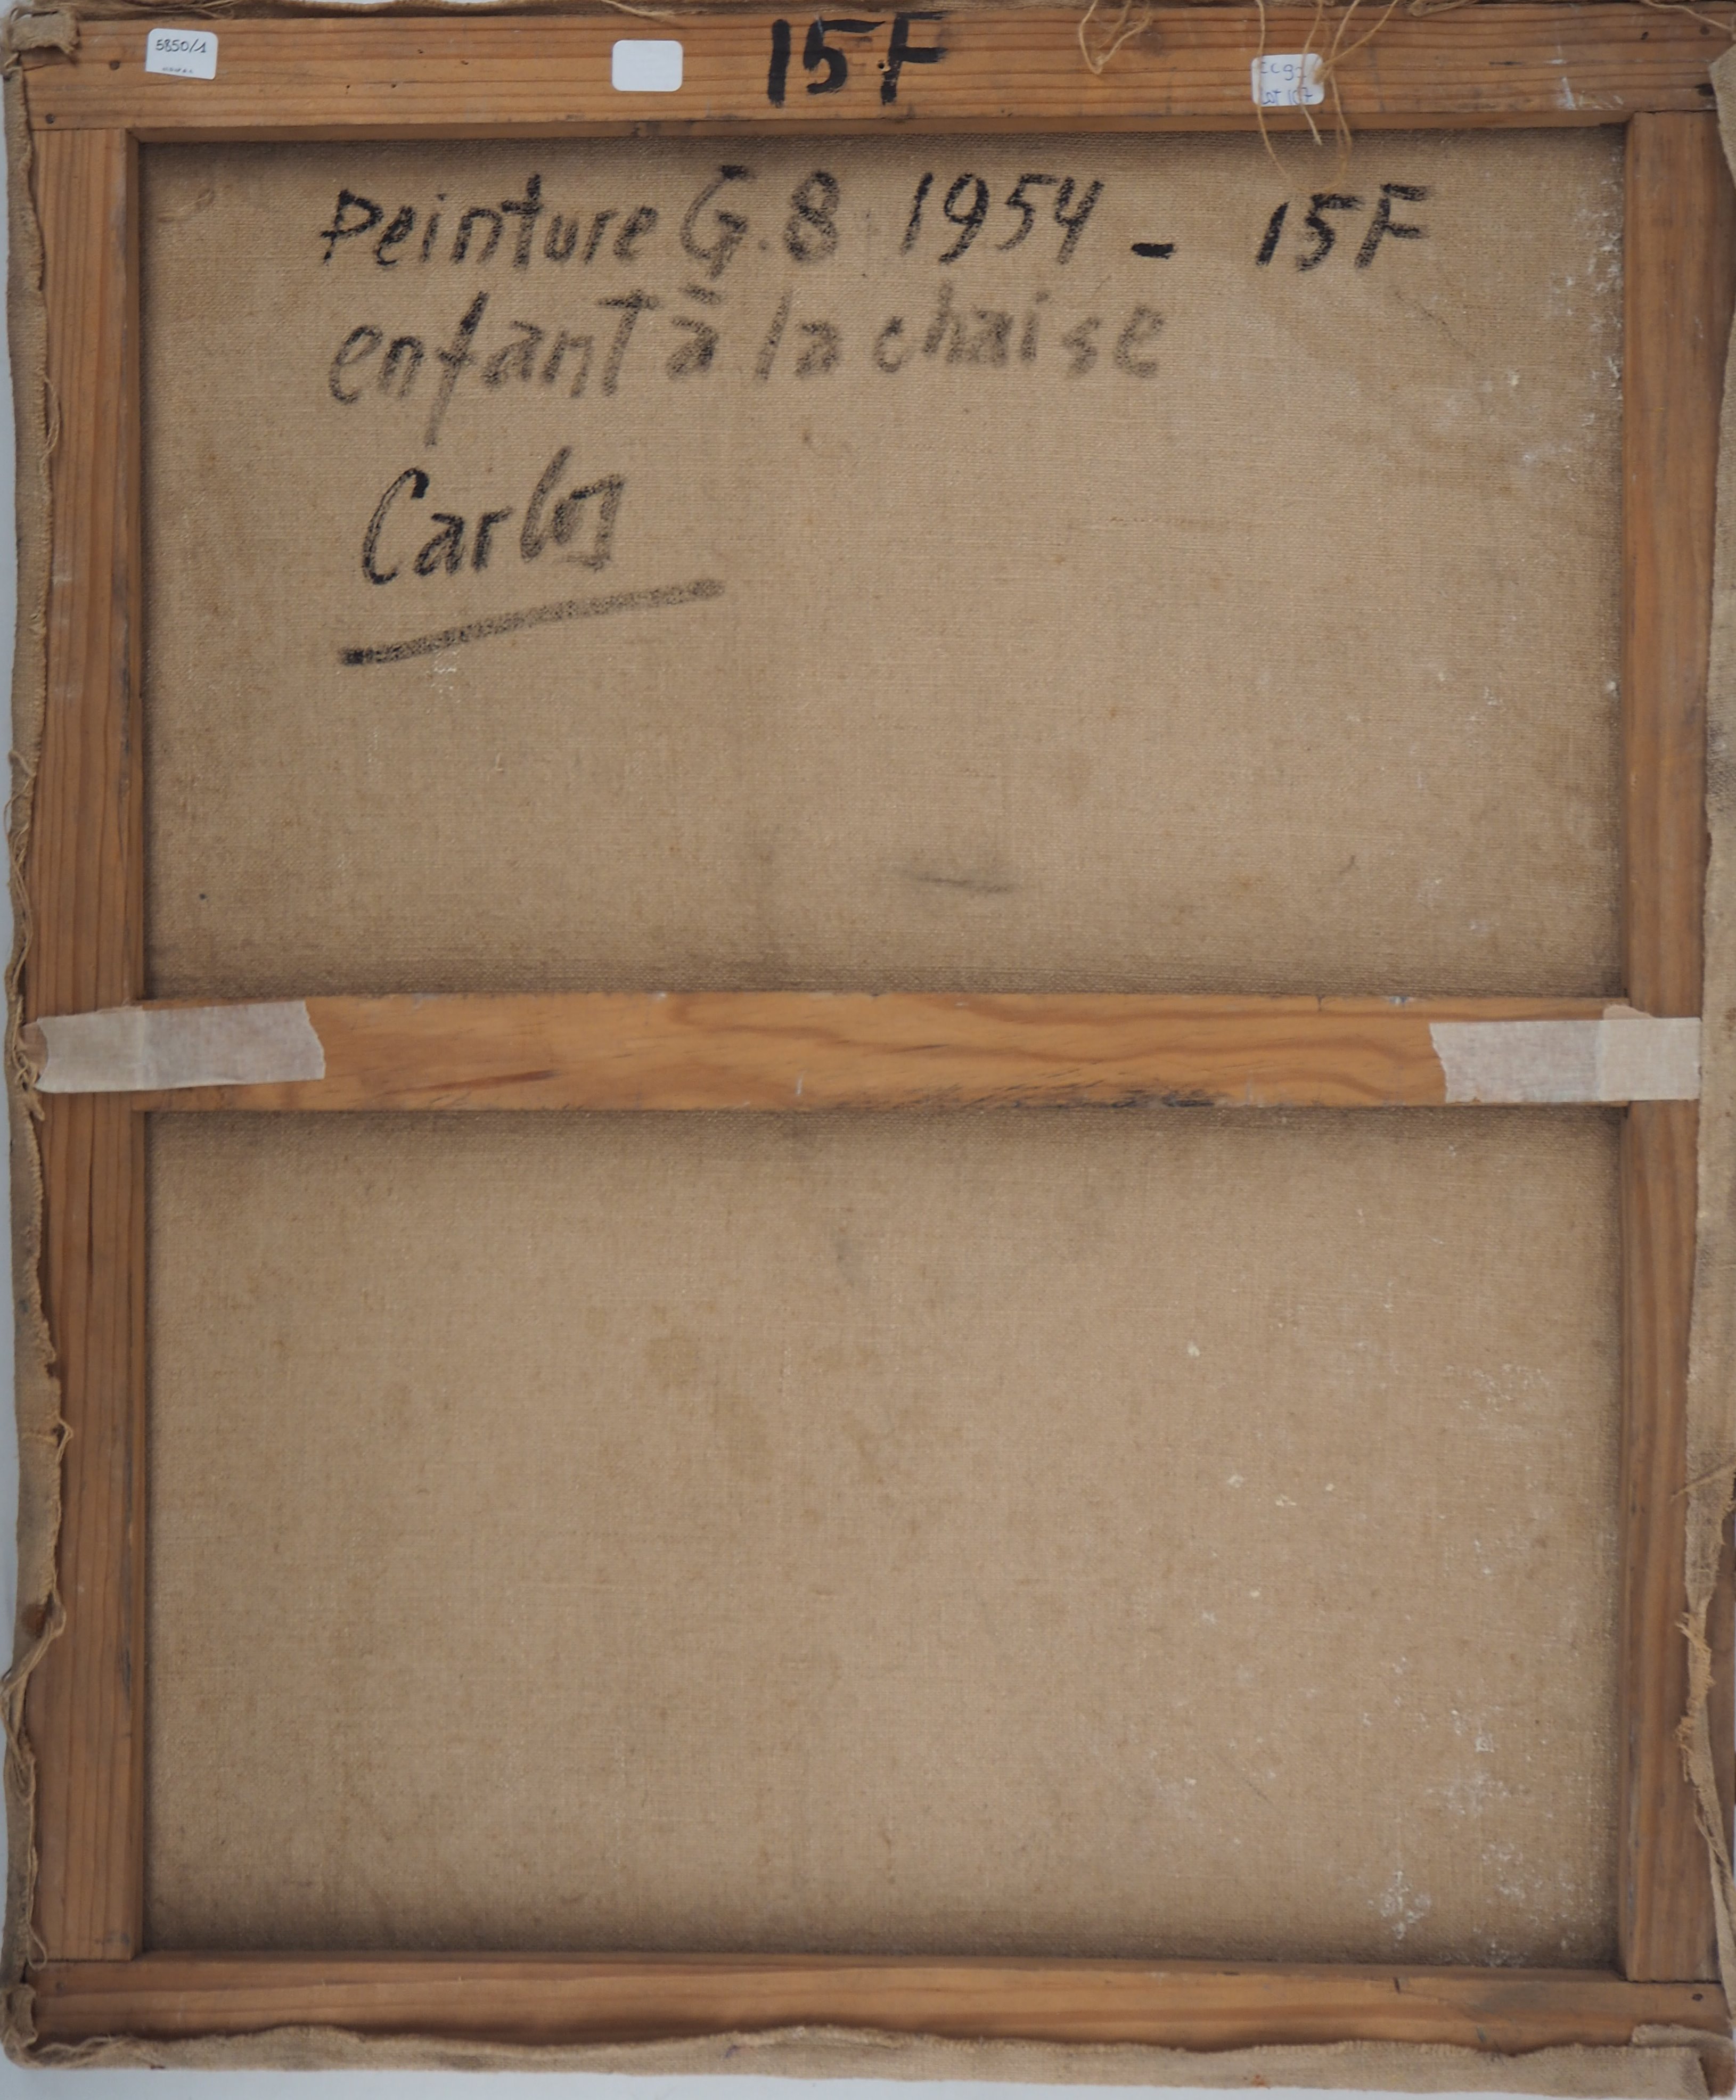 5850/1
15F
Lot 107
Peinture G.8 1954 - 15F
enfant à la chaise
Carlos